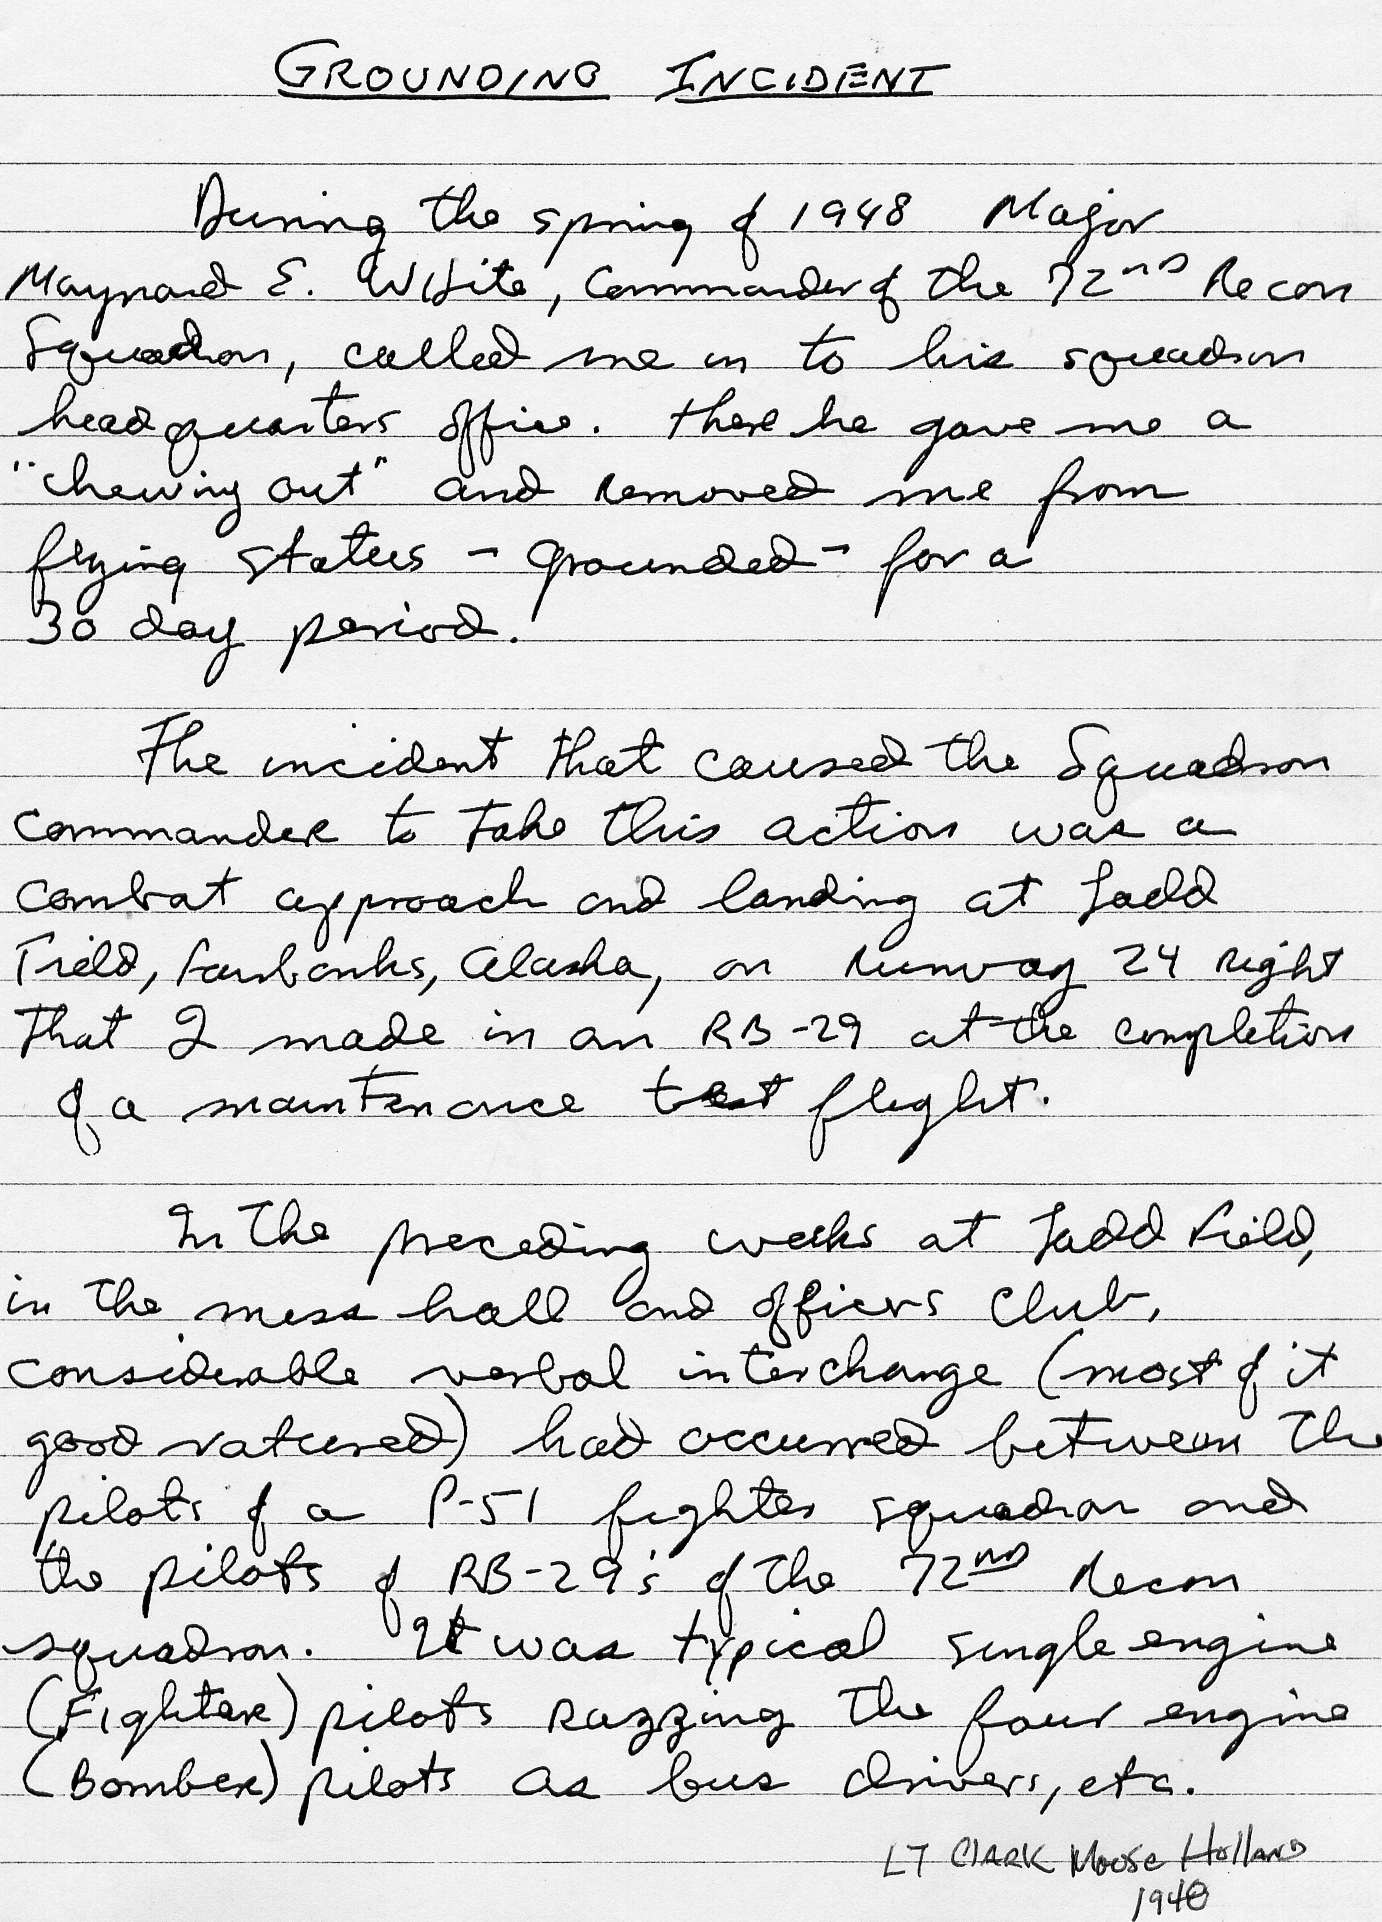 GROUNDING INCIDENT
During the spring of 1948 Major
Maynard E. White, Commander of the 72ND Recon
Squadron, called me in to his squadron
headquarters office. There he gave me a
"chewing out" and removed me from
flying status - grounded - for a
30 day period.
The incident that caused the Squadron
Commander to take this action was a
combat approach and landing at Ladd
Field, Fairbanks, Alaska, on Runway 24 Right
that I made in an RB-29 at the completion
of a maintenance test flight.
In the preceding weeks at Ladd Field,
in the mess hall and officers Club,
considerable verbal interchange (most of it
good natured) had occurred between the
pilots of a P-51 fighter squadron and
the pilots of RB-29's of the 72ND Recon
squadron. It was typical single engine
(Fighter) pilots razzing the four engine
(Bomber) pilots as bus drivers, etc.
LT CLARK Moose Holland
1948